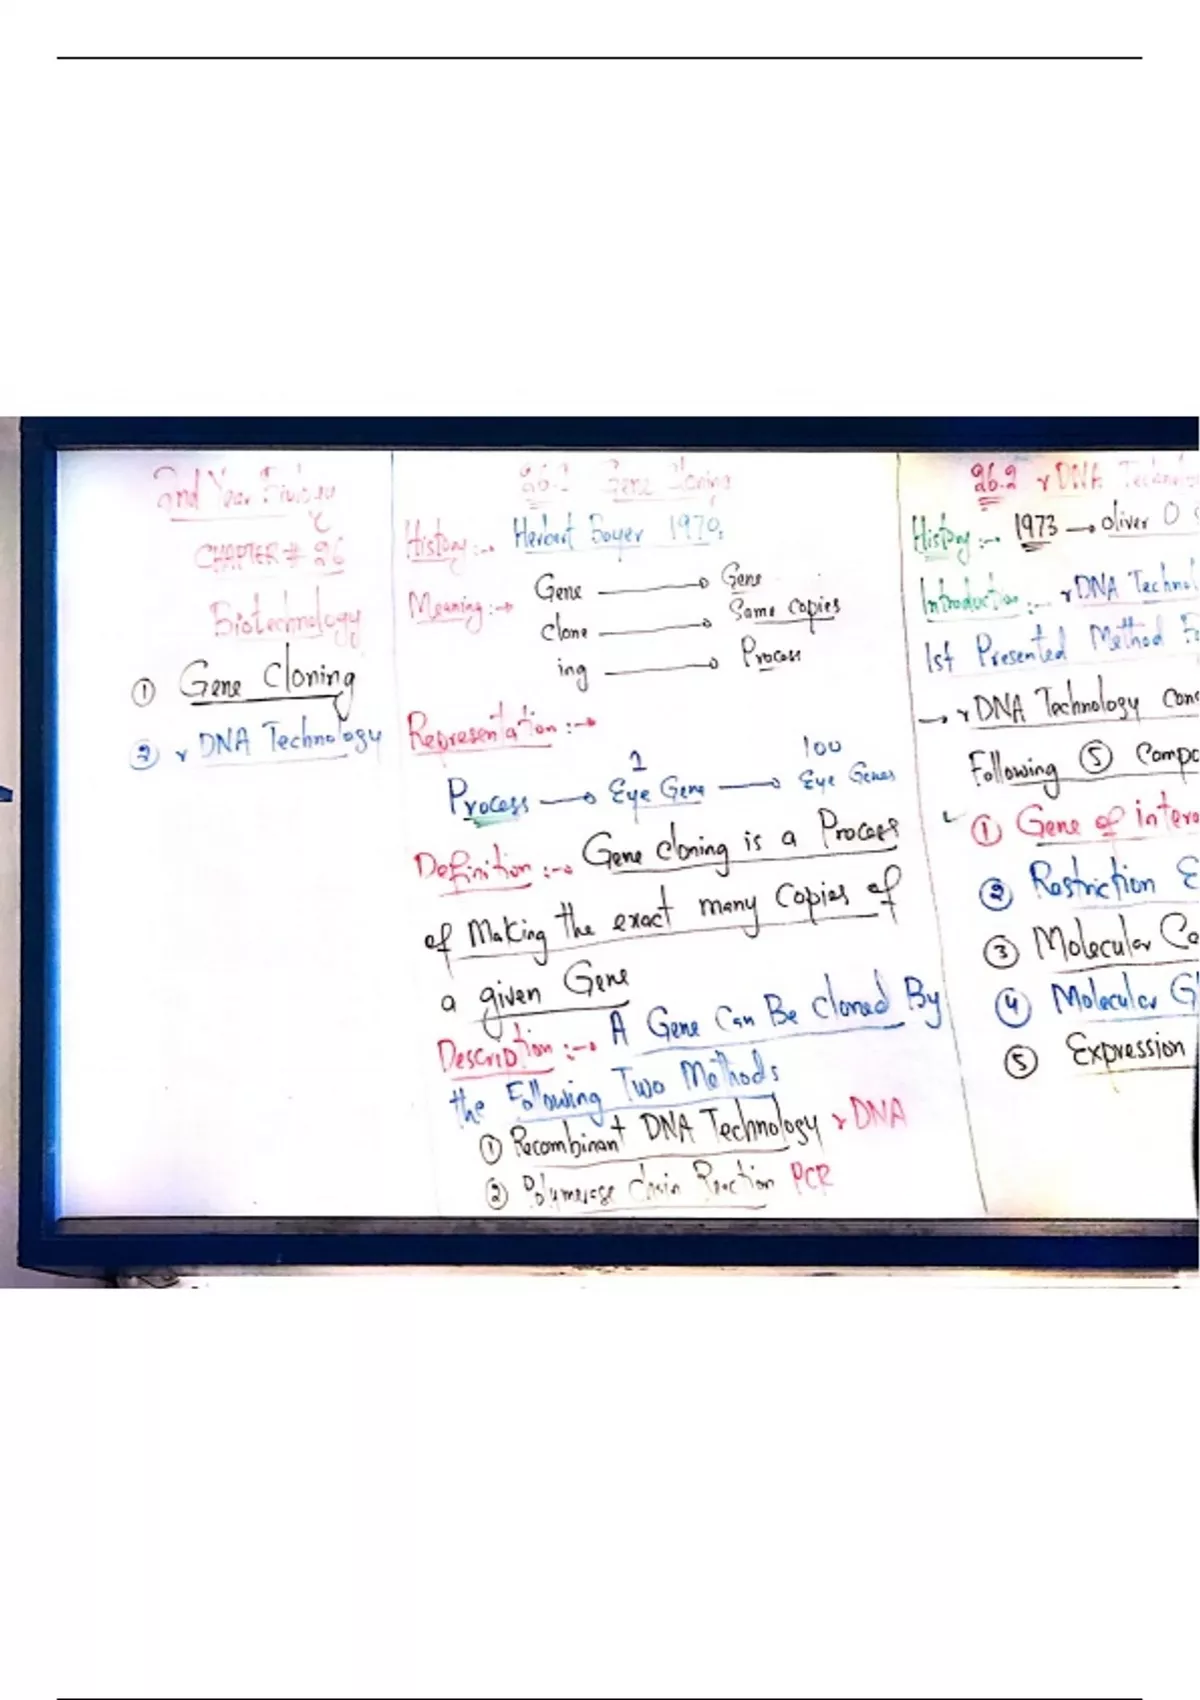 2nd Year Biology
CHAPTER # 26
Biotechnology
① Gene Cloning
② r DNA Technology
26.1 Gene Cloning
History:-→ Herbert Boyer 1970s
Meaning:-→ Gene → Gene
Clone → Same Copies
ing → Process
Representation:-→
1 100
Process → Eye Gene → Eye Genes
Definition:-→ Gene Cloning is a Process
of Making the exact many Copies of
a given Gene
Description:-→ A Gene Can Be Cloned By
the Following Two Methods
① Recombinant DNA Technology rDNA
② Polymerase Chain Reaction PCR
26.2 r DNA
History:-→ 1973 → Oliver O
Introduction:-→ rDNA
1st Presented Method
→ rDNA Technology
Following ⑤
① Gene of
② Restriction E
③ Molecular
④ Molecular
⑤ Expression